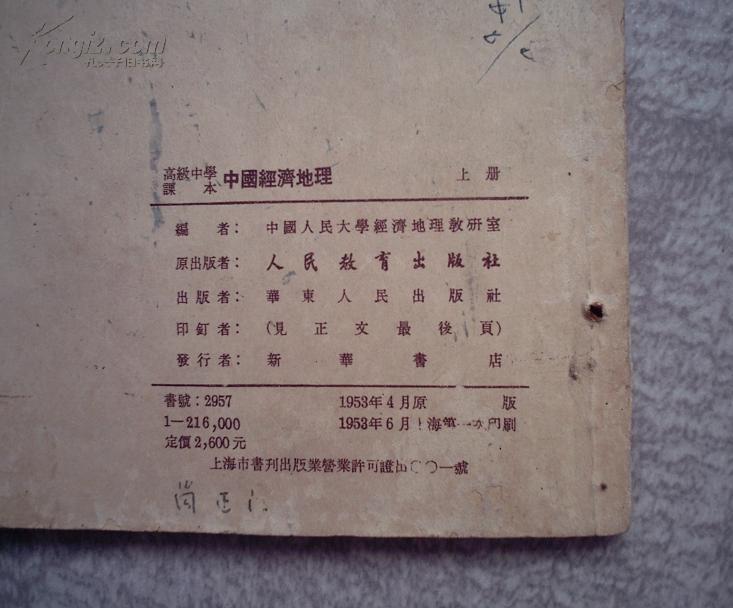 Kongfz.com
孔夫子旧书网
高級中學
課本 中國經濟地理 上册
編者： 中國人民大學經濟地理敎研室
原出版者： 人民教育出版社
出版者： 華東人民出版社
印釘者： (見正文最後頁)
發行者： 新華書店
書號：2957 1953年4月原版
1—216,000 1953年6月上海第一次印刷
定價2,600元
上海市書刊出版業營業許可證出〇〇一號